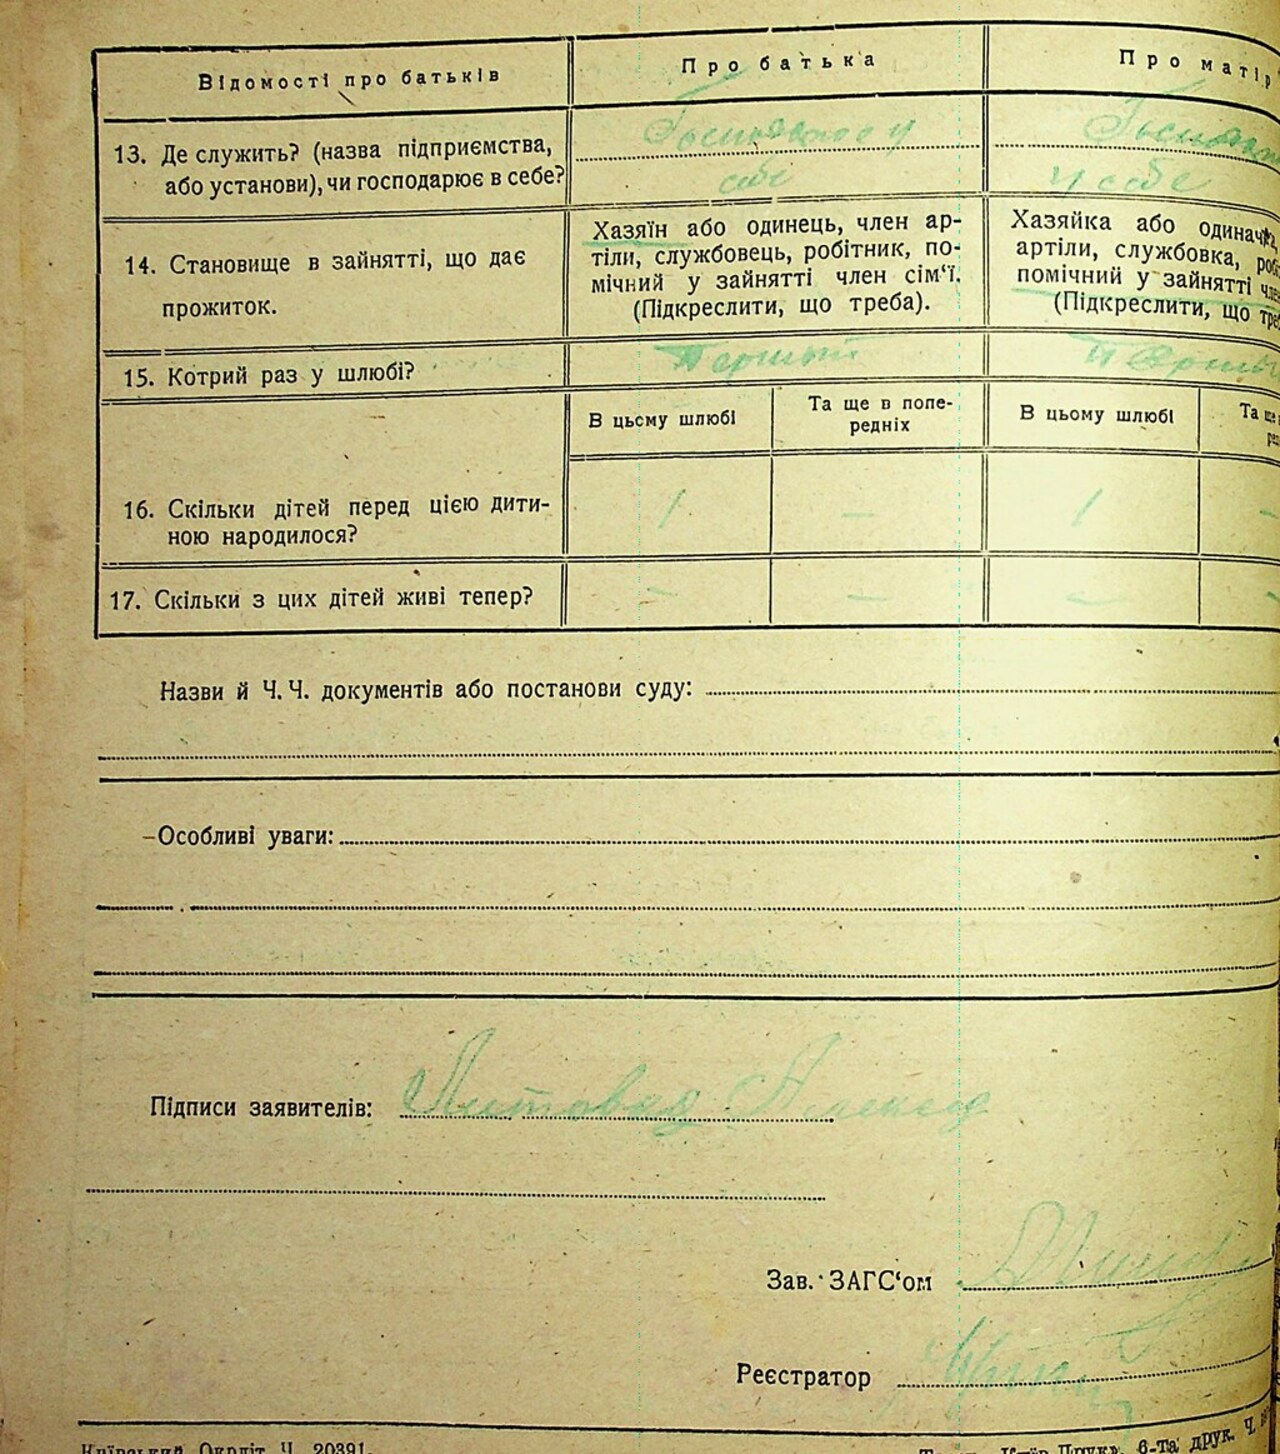 Відомості про батьків
Про батька
Про матір
13. Де служить? (назва підприємства,
або установи), чи господарює в себе?
у
себе
у себе
14. Становище в зайнятті, що дає
прожиток.
Хазяїн або одинець, член ар-
тілі, службовець, робітник, по-
мічний у зайнятті член сім‘ї.
(Підкреслити, що треба).
Хазяйка або одиначка,
артілі, службовка,
помічний у зайнятті
(Підкреслити, що
15. Котрий раз у шлюбі?
Первый
Первый
В цьому шлюбі
Та ще в попе-
редніх
В цьому шлюбі
Та ще
16. Скільки дітей перед цією дити-
ною народилося?
1
—
1
—
17. Скільки з цих дітей живі тепер?
—
—
—
—
Назви й Ч. Ч. документів або постанови суду:
Особливі уваги:
Підписи заявителів:
Зав. ЗАГС‘ом
Реєстратор
Київський Окрліт Ч. 20391.
6-та друк. Ч.